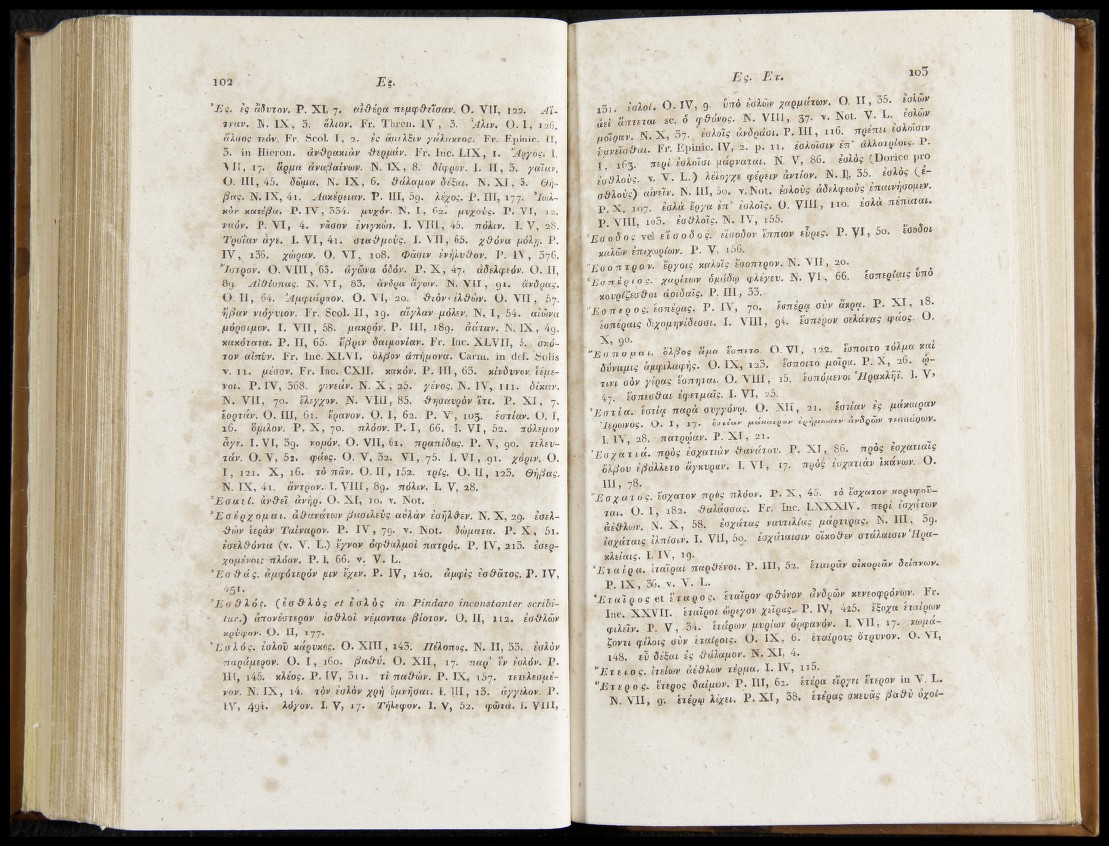 102 Ἐς.
Ἐς. ἐς ἄδυτον. P. XI, 7. αἰθέρα πεμφθεῖσαν. O. VII, 122. Αἴ-
τναν. N. IX, 3. ἅλιον. Fr. Thren. IV, 3. Ἅλιν. O. I, 126.
ἄλσος τεόν. Fr. Scol. I, 2. ἐς ἄμελξιν γάλακτος. Fr. Epinic. II,
3. in Hieron. ἀνθρακιὰν θερμάν. Fr. Inc. LIX, 1. Ἄργος. I.
VII, 17. ἅρμα ἀναβαίνων. N. IX, 8. δίφρον. I. II, 3. γαῖαν.
O. III, 45. δῶμα. N. IX, 6. θάλαμον δέξαι. N. XI, 3. Θή-
βας. N. IX, 41. Λοκέρειαν. P. III, 59. λέχος. P. III, 177. Ἰωλ-
κὸν κατέβα. P. IV, 334. μυχόν. N. I, 62. μυχούς. P. VI, 12.
ναόν. P. VI, 4. νᾶσον ἐνεγκών. I. VIII, 45. πόλιν. I. V, 28.
Τροΐαν ἆγε. I. VI, 41. σταθμούς. I. VII, 65. χθόνα μόλῃ. P.
IV, 136. χῶραν. O. VI, 108. Φᾶσιν ἐνήλυθον. P. IV, 376.
Ἴστρον. O. VIII, 63. ἀγῶνα ὁδόν. P. X, 47. ἀδελφεόν. O. II,
89. Αἰθίοπας. N. VI, 83. ἄνδρα ἄγων. N. VII, 91. ἄνδρας.
O. II, 64. Ἀμφιάρηον. O. VI, 20. θεὸν ἐλθών. O. VII, 57.
ἥβαν νιόγυιον. Fr. Scol. II, 19. αἴγλαν μόλεν. N. I, 54. αἰῶνα
μόρσιμον. I. VII, 58. μακρόν. P. III, 189. ἀάταν. N. IX, 49.
κακότατα. P. II, 65. ὕβριν δαιμονίαν. Fr. Inc. XLVII, 5. σκό-
τον αἰπύν. Fr. Inc. XLVI. ὄλβον ἀπήμονα. Carm. in def. Solis
v. 11. μέσον. Fr. Inc. CXII. κακόν. P. III, 63. κίνδυνον ἐέμε-
νοι. P. IV, 368. γενεάν. N. X, 25. γένος. N. IV, 111. δίκαν.
N. VII, 70. ἔλεγχον. N. VIII, 85. θησαυρὸν ἴτε. P. XI, 7.
ἑορτάν. O. III, 61. ἔρανον. O. I, 62. P. V, 103. ἑστίαν. O. I,
16. ὅμιλον. P. X, 70. πλόον. P. I, 66. I. VI, 52. πόλεμον
ἆγε. I. VI, 39. νομόν. O. VII, 61. πραπίδας. P. V, 90. τελευ-
τάν. O. V, 52. φάος. O. V, 32. VI, 75. I. VI, 91. χάριν. O.
I, 121. X, 16. τὸ πᾶν. O. II, 152. τρίς. O. II, 123. Θήβας.
N. IX, 41. ἄντρον. I. VIII, 89. πόλιν. I. V, 28.
Ἐσαεί. ἀνθεῖ ἀνήρ. O. XI, 10. v. Not.
Ἐσέρχομαι. ἀθανάτων βασιλεὺς αὐλὰν ἐσῆλθεν. N. X, 29. ἐσελ-
θὼν ἱερὰν Ταίναρον. P. IV, 79. v. Not. δώματα. P. X, 51.
ἐσελθόντα (v. V. L.) ἔγνον ὀφθαλμοὶ πατρός. P. IV, 213. ἐσερ-
χομένοις πλόον. P. I, 66. v. V. L.
Ἐσθάς. ἀμφότερόν μιν ἔχεν. P. IV, 140. ἀμφὶς ἐσθᾶτος. P. IV,
451.
Ἐσθλός. (ἐσθλὸς et ἐσλὸς in Pindaro inconstanter scribi-
tur.) ἀπονέστερον ἐσθλοὶ νέμονται βίοτον. O. II, 112. ἐσθλῶν
κρύφον. O. II, 177.
Ἐσλός. ἐσλοῦ κάρυκος. O. XIII, 143. Πέλοπος. N. II, 33. ἐσλὸν
παράμερον. O. I, 160. βαθύ. O. XII, 17. παρ' ἓν ἐσλόν. P.
III, 145. κλέος. P. IV, 311. τὶ παθών. P. IX, 157. τετελεσμέ-
νον. N. IX, 14. τὸν ἐσλὸν χρὴ ὑμνῆσαι. I. III, 13. ἄγγελον. P.
IV, 494. λόγον. I. V, 17. Τήλεφον. I. V, 52. φῶτα. I. VIII,
Ἐς. Ἐτ. 103
131. ἐσλοί. O. IV, 9. ὑπὸ ἐσλῶν χαρμάτων. O. II, 35. ἐσλῶν
ἀεὶ ἅπτεται sc. ὁ φθόνος. N. VIII, 37. v. Not. V. L. ἐσλῶν
μοῖραν. N. X, 37. ἐσλοῖς ἀνδράσι. P. III, 116. πρέπει ἐσλοῖσιν
ὑμνεῖσθαι. Fr. Epinic. IV, 2. p. 11. ἐσλοῖσιν ἐπ' ἀλλοτρίοις. P.
I, 163. περὶ ἐσλοῖσι μάρναται. N. V, 86. ἐσλὸς (Dorice pro
ἐσθλοὺς. v. V. L.) λέλογχε φέρειν ἀντίον. N. I, 35. ἐσλὸς (ἐ-
σθλοὺς) αἰνεῖν. N. III, 50. v. Not. ἐσλοὺς ἀδελφεοὺς ἐπαινήσομεν.
P. X, 107. ἐσλὰ ἔργα ἐπ' ἐσλοῖς. O. VIII, 110. ἐσλὰ πέπαται.
P. VIII, 103. ἐσθλοῖς. N. IV, 155.
Ἔσοδος vel εἴσοδος. εἴσοδον ἵππιον εὗρες. P. VI, 50. ἔσοδοι
καλῶν ἐπιχωρίων. P. V, 156.
Ἔσοπτρον. ἔργοις καλοῖς ἔσοπτρον. N. VII, 20.
Ἑσπέριος. χαρίτων ὁμάδῳ φλέγεν. N. VI, 66. ἑσπερίαις ὑπὸ
κουρίζεσθαι ἀοιδαῖς. P. III, 33.
Ἕσπερος. ἑσπέρας. P. IV, 70. ἑσπέρᾳ σὺν ἄκρᾳ. P. XI, 18.
ἑσπέραις διχομηνίδεσσι. I. VIII, 94. ἕσπερον σελάνας φάος. O.
X, 90.
Ἕσπομαι. ὄλβος ἅμα ἕσπετο. O. VI, 122. ἕσποιτο τόλμα καὶ
δύναμις ἀμφιλαφής. O. IX, 123. ἕσποιτο μοῖρα. P. X, 26. ᾧ-
τινι σὸν γέρας ἕσπηται. O. VIII, 15. ἑσπόμενοι Ἡρακλῆϊ. I. V,
47. ἕσπεσθαι ἐφετμαῖς. I. VI, 25.
Ἑστία. ἑστίᾳ παρὰ συγγόνῳ. O. XII, 21. ἑστίαν ἐς μάκαιραν
Ἱέρωνος. O. I, 17. ἑστίαν μάκαιραν ἐρήμωσεν ἀνδρῶν τεσσάρων.
I. IV, 28. πατρῴαν. P. XI, 21.
Ἐσχατιά. πρὸς ἐσχατιὰν θανάτου. P. XI, 86. πρὸς ἐσχατιαῖς
ὄλβου ἐβάλλετο ἄγκυραν. I. VI, 17. πρὸς ἐσχατιὰν ἱκάνων. O.
III, 78.
Ἔσχατος. ἔσχατον πρὸς πλόον. P. X, 45. τὸ ἔσχατον κορυφοῦ-
ται. O. I, 182. θαλάσσας. Fr. Inc. LXXXIV. περὶ ἐσχάτων
ἀέθλων. N. X, 58. ἐσχάτας ναυτιλίας μάρτυρας. N. III, 39.
ἐσχάταις ἐλπίσιν. I. VII, 50. ἐσχάταισιν οἴκοθεν στάλαισιν Ἡρα-
κλείαις. I. IV, 19.
Ἑταίρα. ἑταῖραι παρθένοι. P. III, 32. ἑταιρᾶν οἰκοριᾶν δείπνων.
P. IX, 36. v. V. L.
Ἑταῖρος et ἕταρος. ἑταῖρον φθόνον ἀνδρῶν κενεοφρόνων. Fr.
Inc. XXVII. ἑταῖροι ὤρεγον χεῖρας. P. IV, 425. ἔξοχα ἑταίρων
φιλεῖν. P. V, 34. ἑτάρων μυρίων ὀρφανόν. I. VII, 17. κωμά-
ζοντι φίλοις σὺν ἑταίροις. O. IX, 6. ἑταίρους ὄτρυνον. O. VI,
148. εὖ δέξαι ἐς θάλαμον. N. XI, 4.
Ἔτειος. ἐτείων ἀέθλων τέρμα. I. IV, 115.
Ἕτερος. ἕτερος δαίμων. P. III, 62. ἑτέρα εἴργει ἕτερον in V. L.
N. VII, 9. ἑτέρῳ λέχει. P. XI, 38. ἑτέρας σκευᾶς βαθὺ ὀχοί-